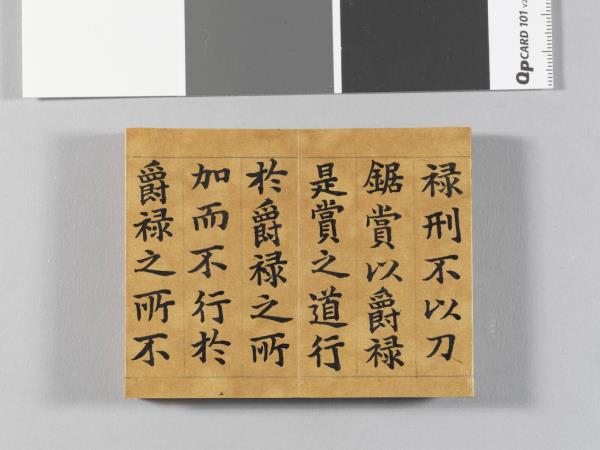 禄刑不以刀
鋸賞以爵禄
是賞之道行
於爵禄之所
加而不行於
爵禄之所不
QPCARD 101 v2